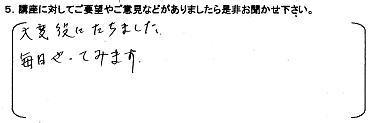 5. 講座に対してご要望やご意見などがありましたら是非お聞かせ下さい。
大変役にたちました。
毎日やってみます。